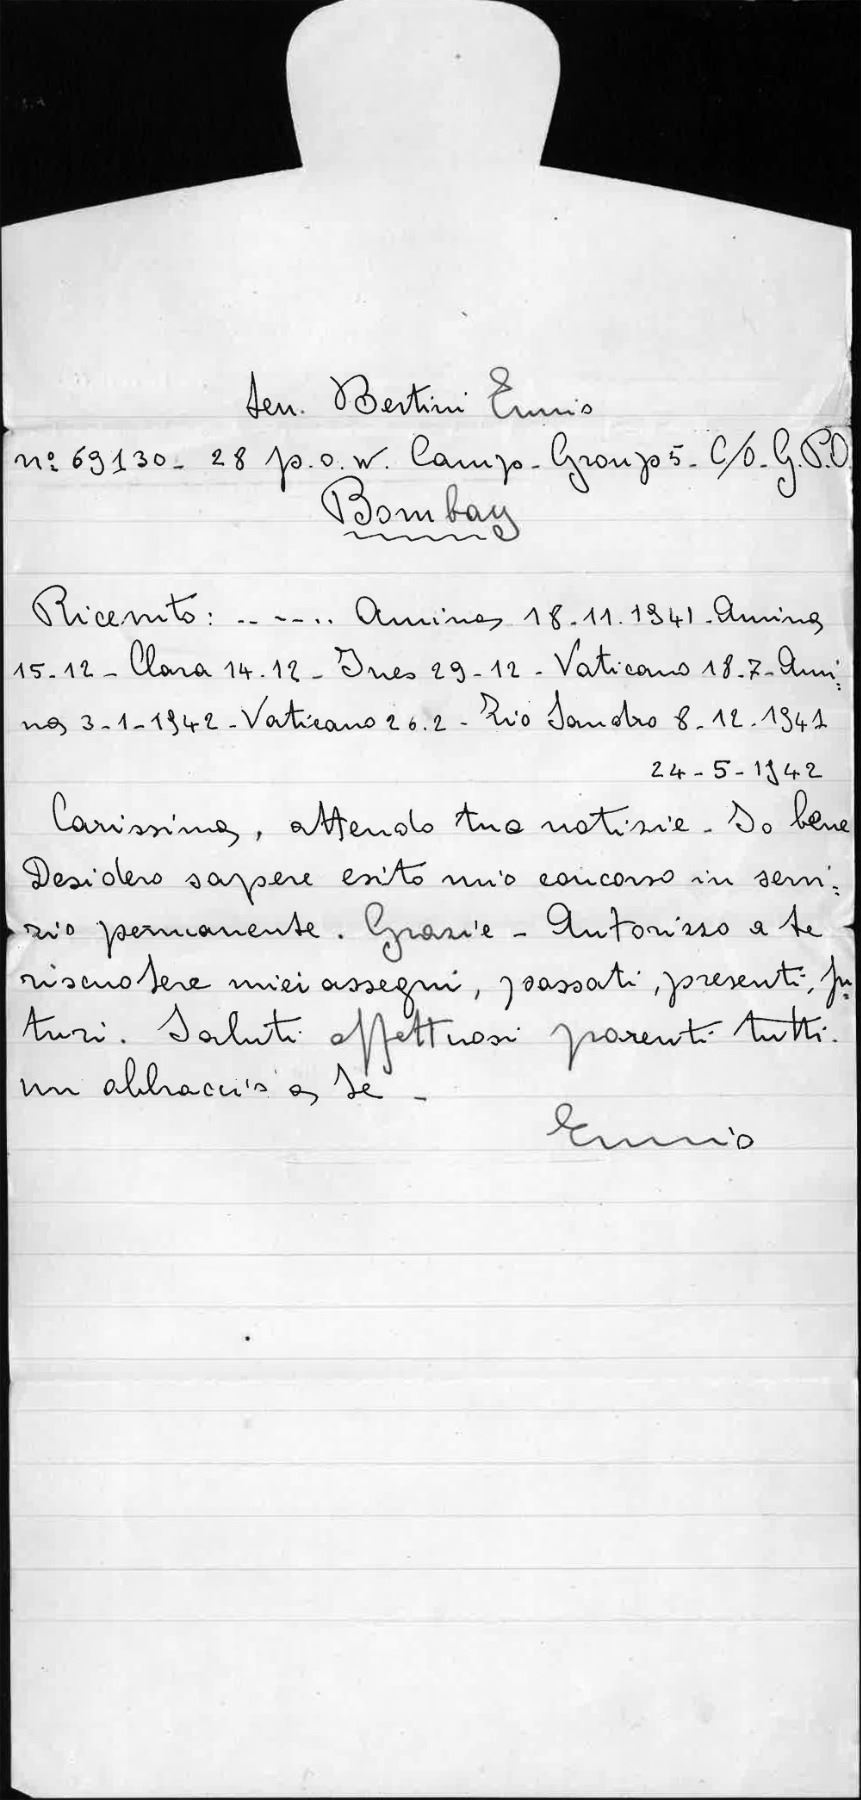 Ten. Bertini Ennio
n° 69130 - 28 p.o.w. Camp - Group 5 - C/O - G.P.O
Bombay
Ricevuto: .. -- .. Amina 18.11.1941 - Amina
15-12 - Clara 14.12 - Ines 29-12 - Vaticano 18.7 - Ami=
na 3-1-1942 - Vaticano 26.2 - Zio Sandro 8-12-1941
24-5-1942
Carissima, attendo tue notizie - Io bene
Desidero sapere esito mio concorso in servi=
zio permanente. Grazie - Autorizzo a te
riscuotere miei assegni, passati, presenti, fu=
turi. Saluti affettuosi parenti tutti.
un abbraccio a te -
Ennio